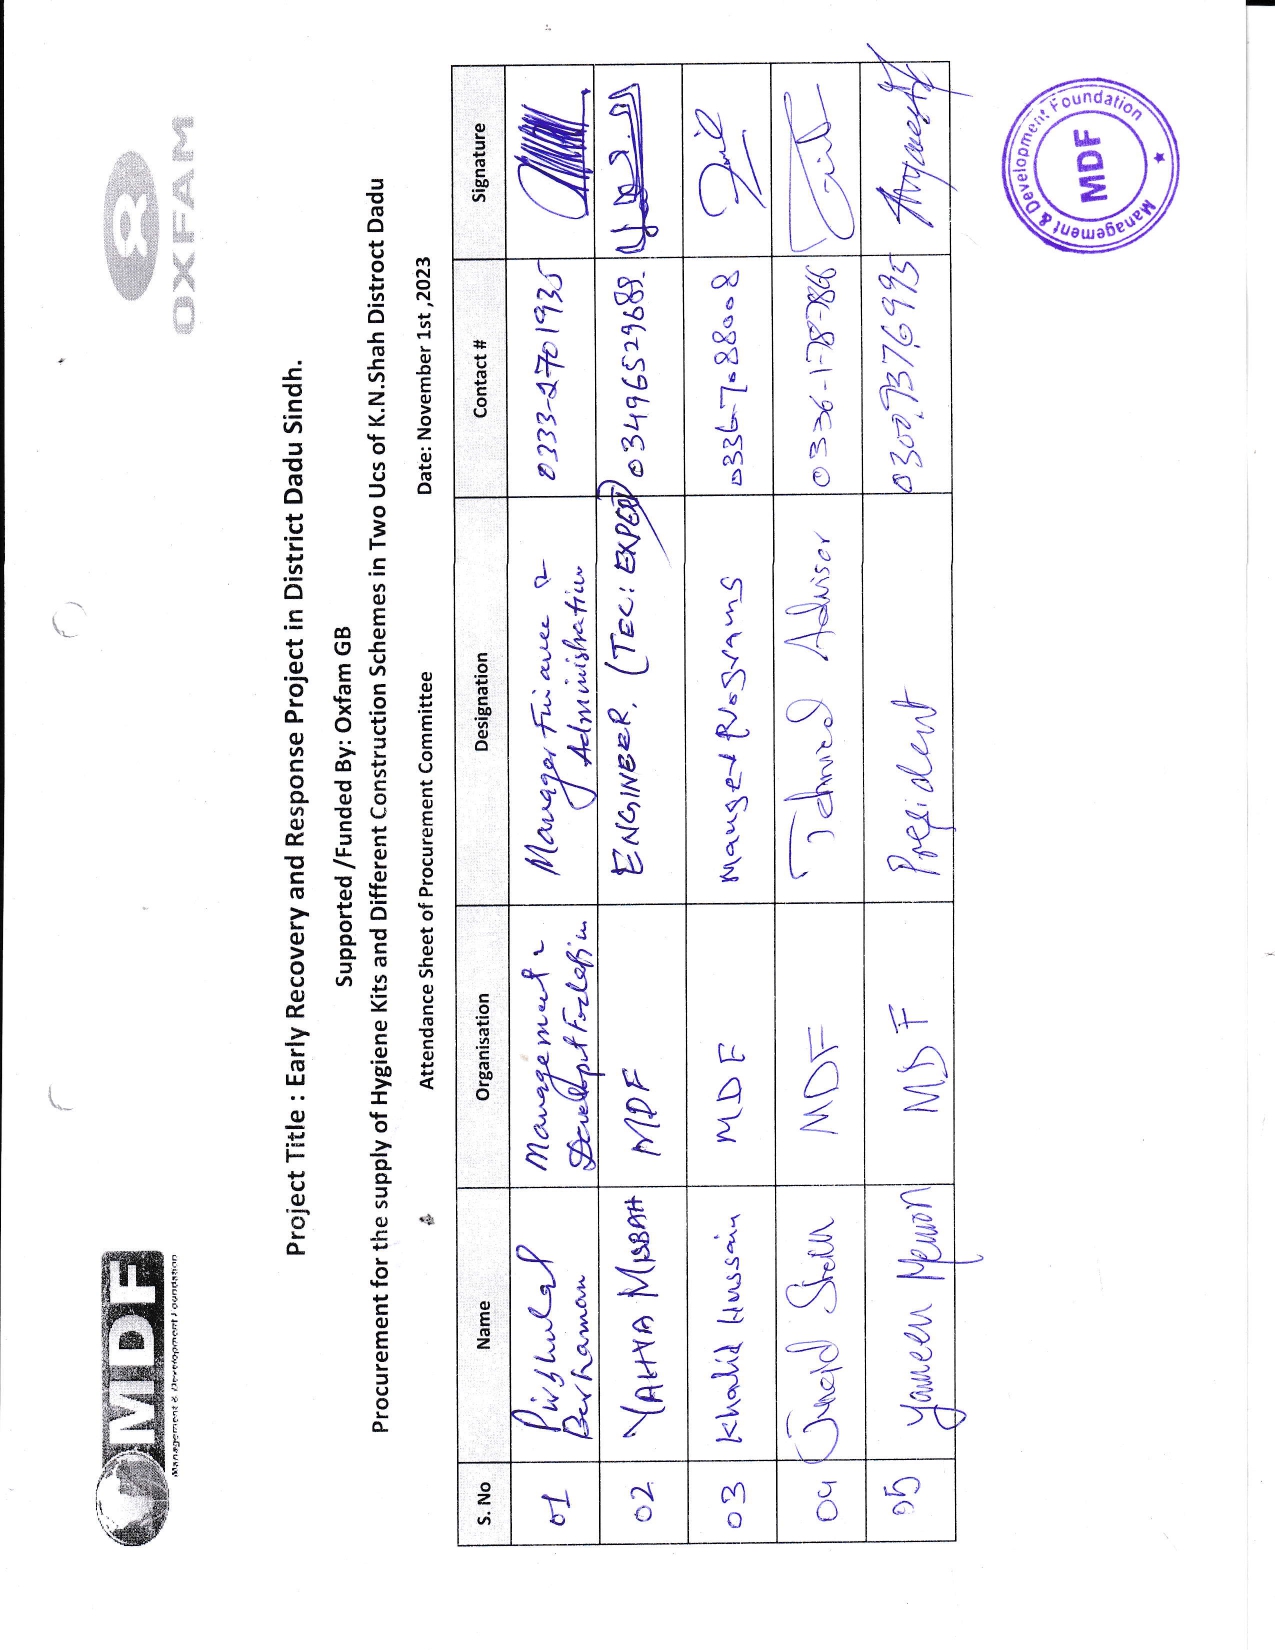 MDF
Management & Development Foundation
OXFAM
Project Title : Early Recovery and Response Project in District Dadu Sindh.
Supported /Funded By: Oxfam GB
Procurement for the supply of Hygiene Kits and Different Construction Schemes in Two Ucs of K.N.Shah Distroct Dadu
Attendance Sheet of Procurement Committee Date: November 1st ,2023
S. No Name Organisation Designation Contact # Signature
01 Management & Manager Finance & 0333-2701935
Administration
02 YAHYA MISBAH MDF ENGINEER. (TEC: EXPERT) 03496529689.
03 Khalid Hussain MDF Manger Programs 0336-7088008
04 Junaid Shah MDF Technical Advisor 0336-1787866
05 Yameen Memon MDF President 03009376993
Management & Development Foundation
MDF